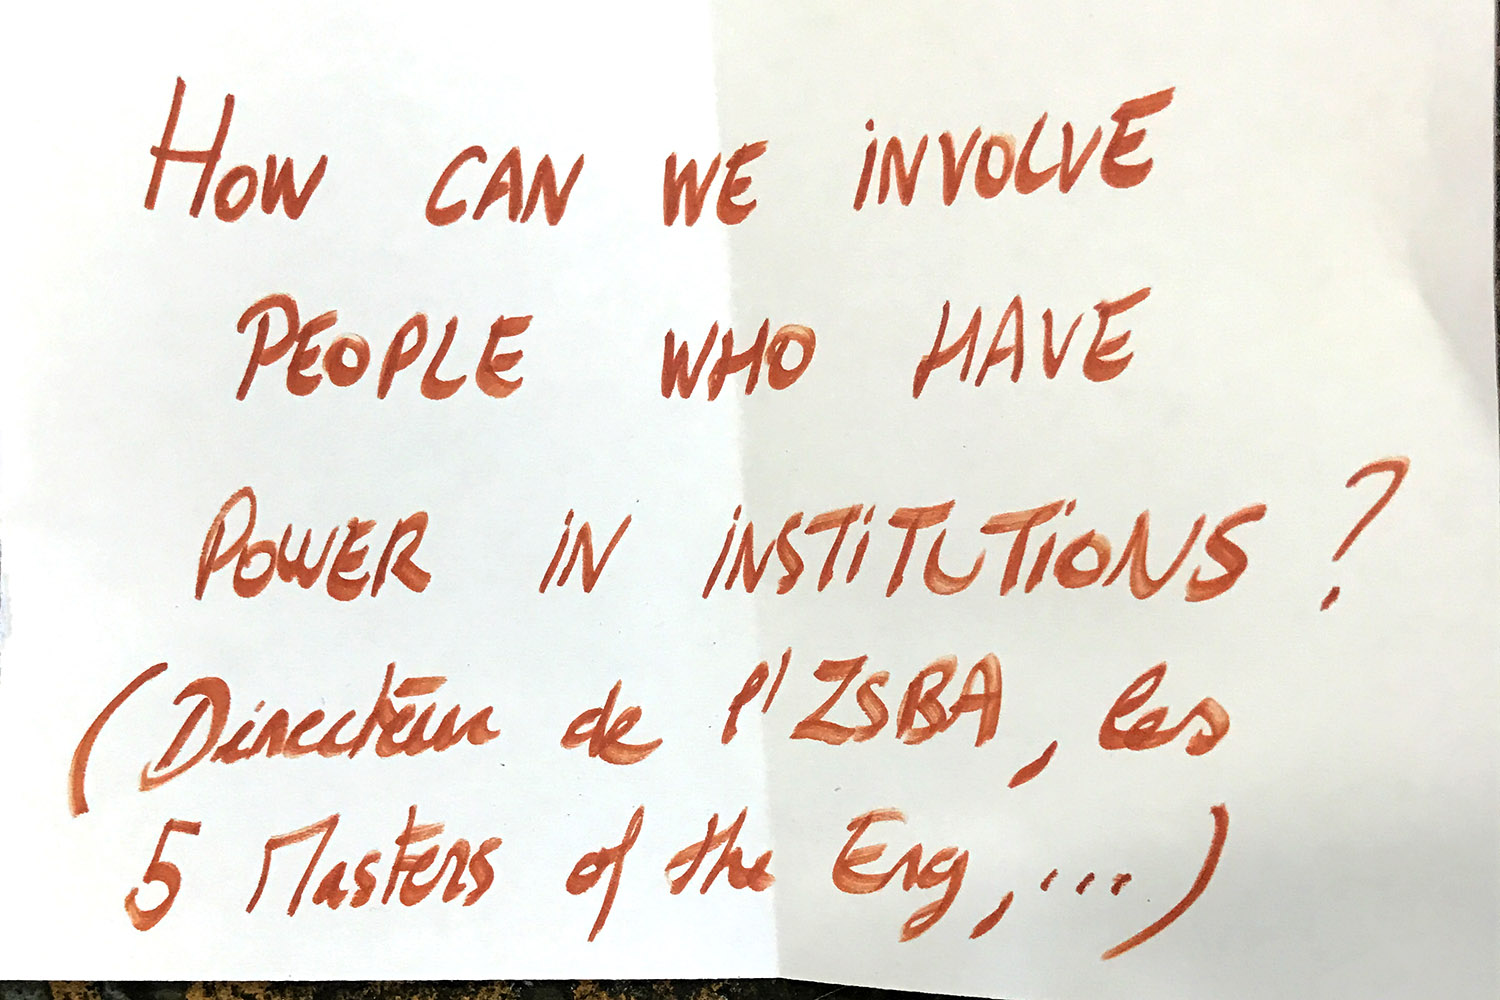 HOW CAN WE INVOLVE
PEOPLE WHO HAVE
POWER IN INSTITUTIONS ?
(Directeur de l'ISBA, les
5 Masters of the Erg, ...)